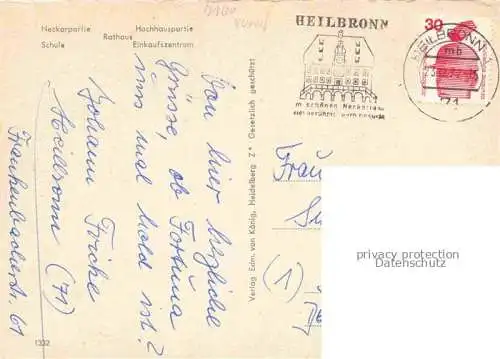 Neckarpartie
Hochhauspartie
Schule
Rathaus
Einkaufszentrum
HEILBRONN
30
HEILBRONN
mb
71
Von hier herzliche
Grüsse, ob Fortuna
uns mal hold ist?
Johann
Heilbronn (71)
Frankenbacherstr. 61
Verlag Edm. von König, Heidelberg Z* Gesetzlich geschützt
Frau
(1)
privacy protection
Datenschutz
1332